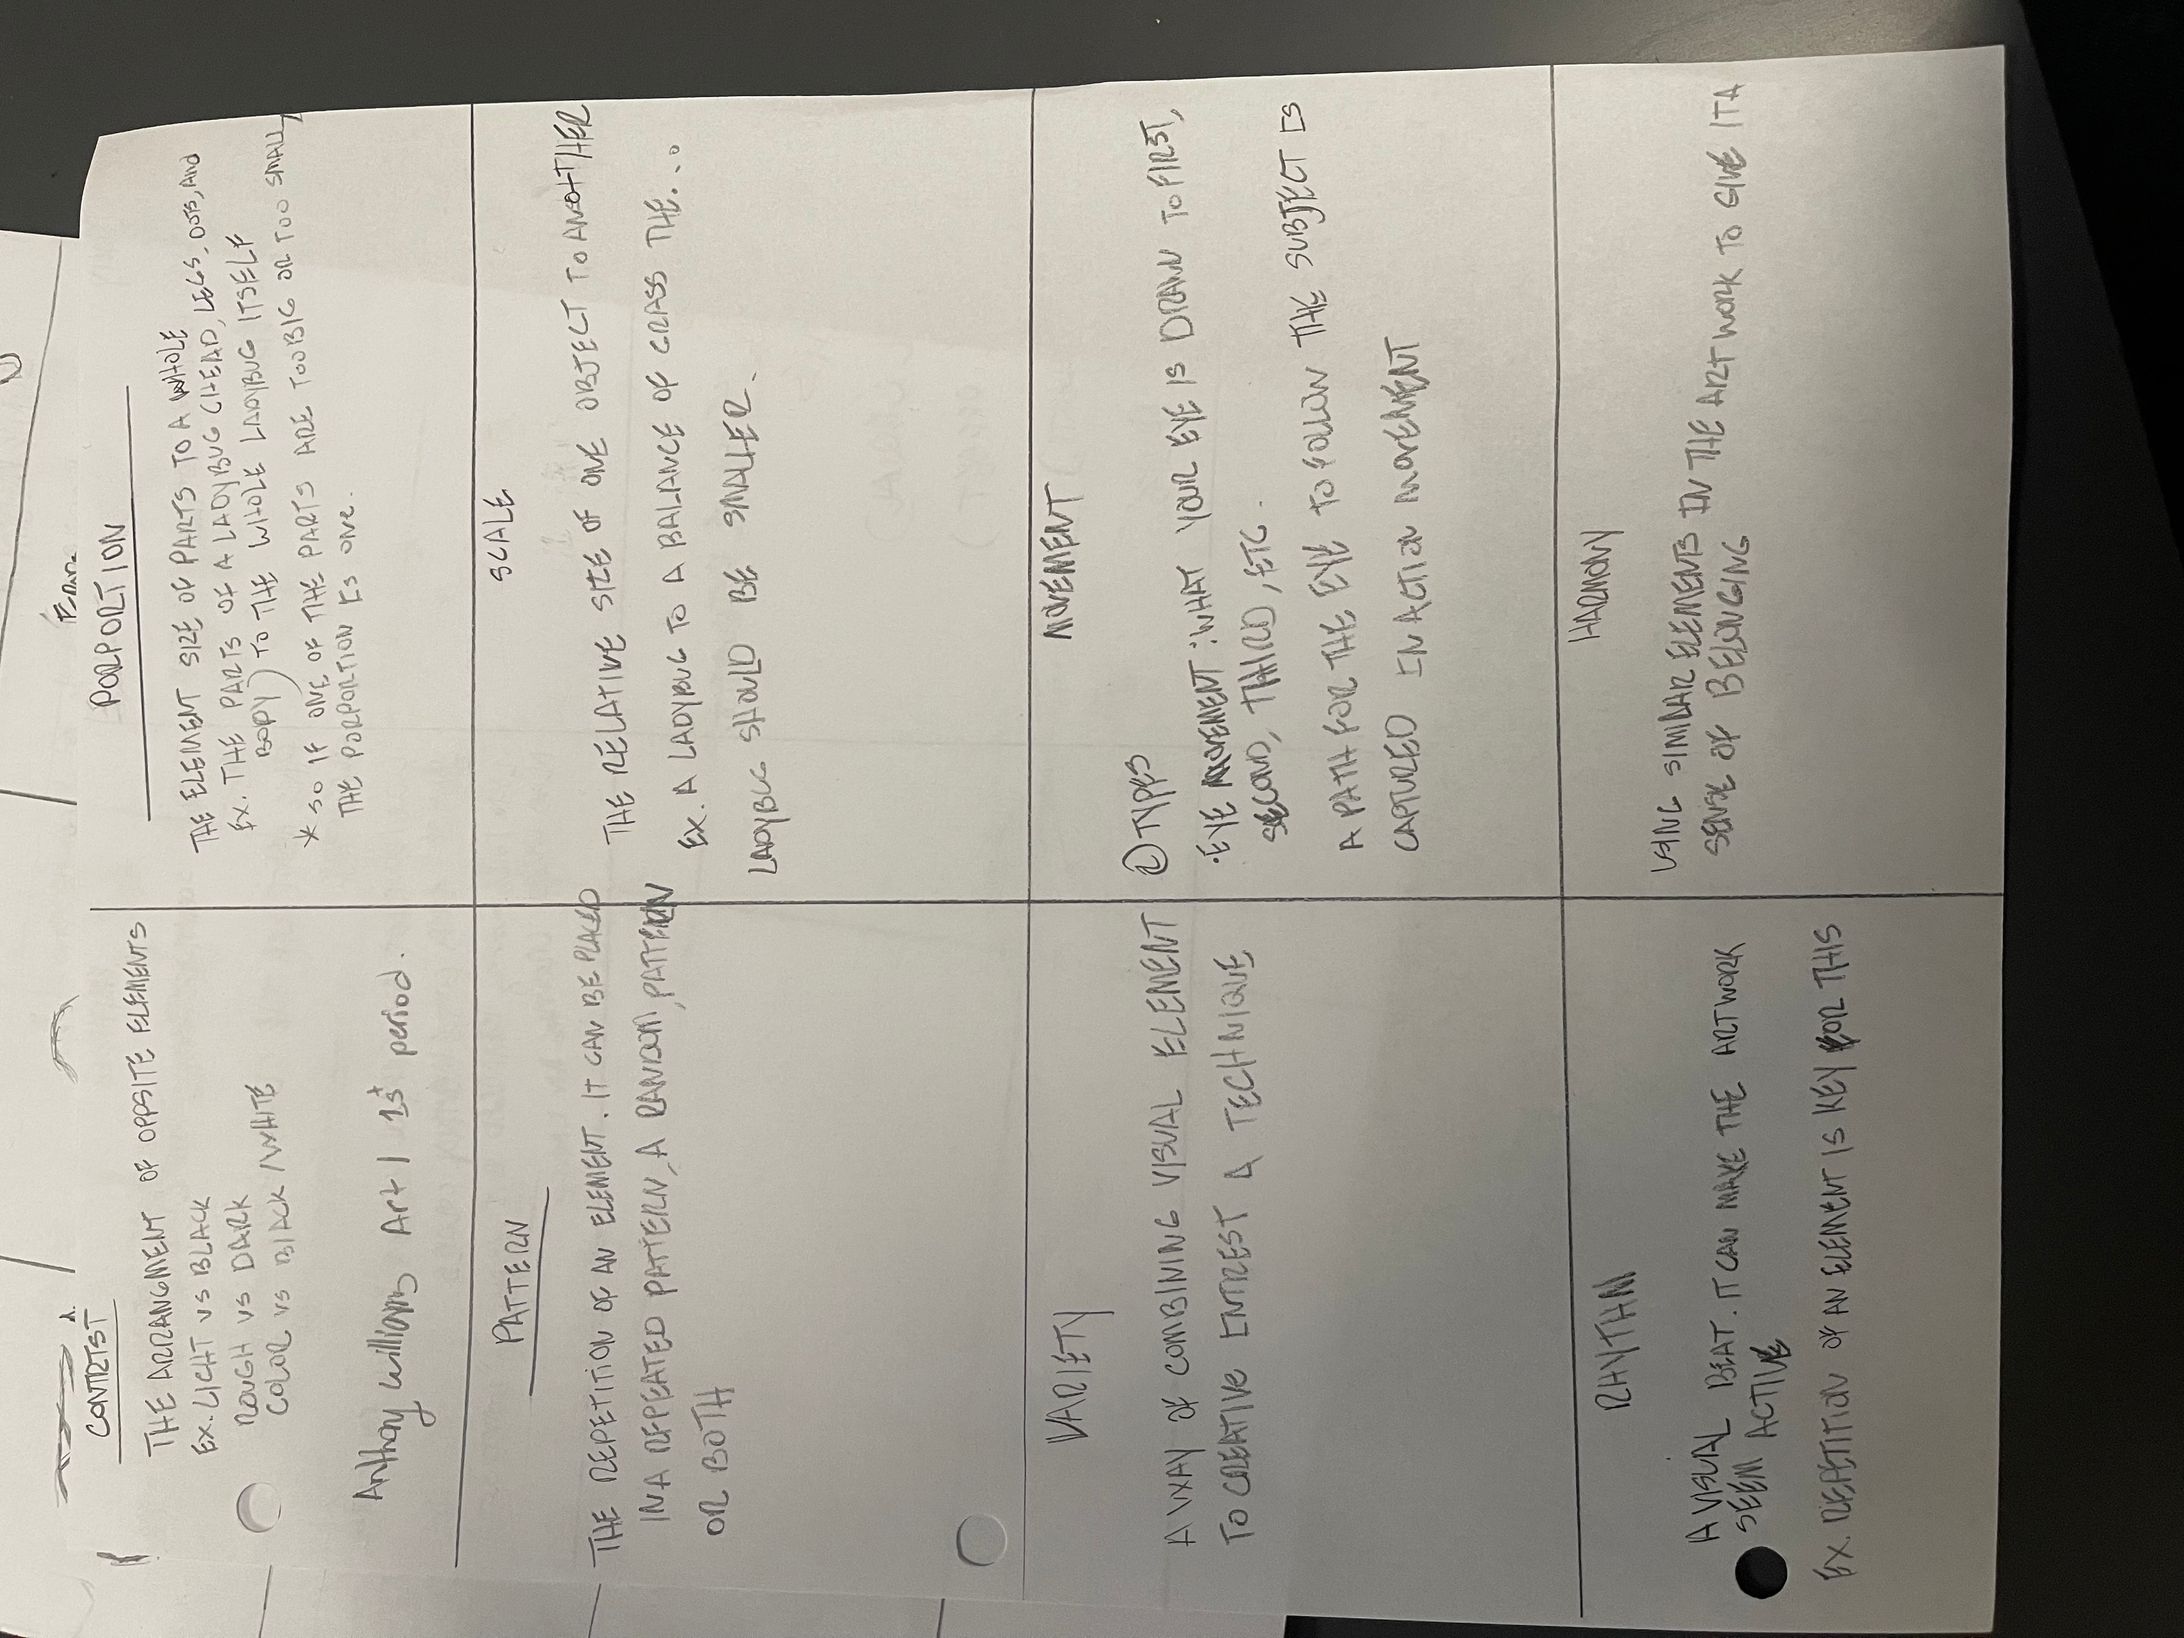 CONTRST
THE ARRANGMENT OF OPPSITE ELEMENTS
EX. LIGHT VS BLACK
ROUGH VS DARK
COLOR VS BLACK/WHITE
Anthony Williams Art 1 1st period.
PORPORTION
THE ELEMENT SIZE OF PARTS TO A WHOLE
EX. THE PARTS OF A LADYBUG (HEAD, LEGS, DOTS, AND
BODY) TO THE WHOLE LADYBUG ITSELF
* SO IF ONE OF THE PARTS ARE TOO BIG OR TOO SMALL,
THE PORPORTION IS ONE.
PATTERN
THE REPETITION OF AN ELEMENT. IT CAN BE PLACED
IN A REPEATED PATTERN, A RANDOM, PATTERN
OR BOTH
SCALE
THE RELATIVE SIZE OF ONE OBJECT TO ANOTHER
EX. A LADYBUG TO A BALANCE OF GRASS THE...
LADYBUG SHOULD BE SMALLER.
VARIETY
A WAY OF COMBINING VISUAL ELEMENT
TO CREATIVE INTREST A TECHNIQUE
MOVEMENT
② TYPES
·EYE MOVEMENT: WHAT YOUR EYE IS DRAWN TO FIRST,
SECOND, THIRD, ETC.
A PATH FOR THE EYE TO FOLLOW THE SUBJECT IS
CAPTURED IN ACTION MOVEMENT
RHYTHM
A VISUAL BEAT. IT CAN MAKE THE ARTWORK
SEEM ACTIVE
EX. REPETITION OF AN ELEMENT IS KEY FOR THIS
HARMONY
USING SIMILAR ELEMENTS IN THE ARTWORK TO GIVE IT A
SENSE OF BELONGING